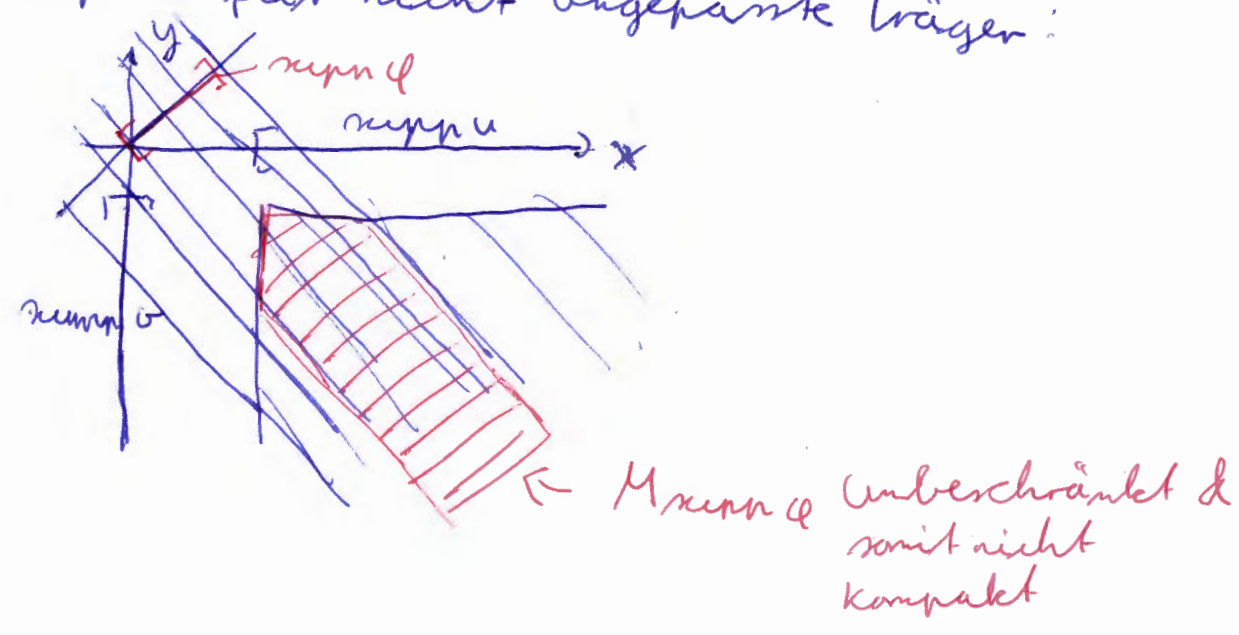 für nicht angepasste Träger:
y
supp φ
supp u
x
supp v
M supp φ unbeschränkt &
somit nicht
kompakt